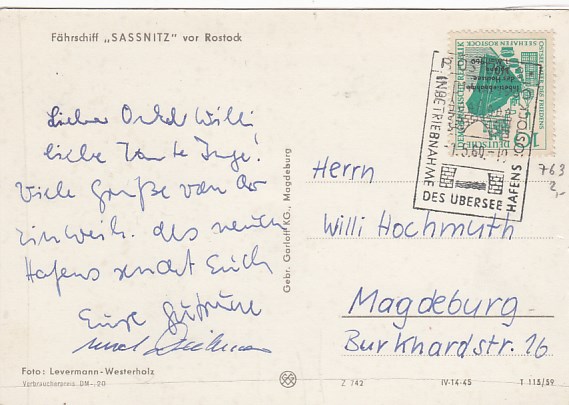 Fährschiff „SASSNITZ" vor Rostock
Lieber Onkel Willi
liebe Tante Inge!
Viele Grüße von der
Einweih. des neuen
Hafens sendet Euch
Eure
und
Foto: Levermann-Westerholz
Verbraucherpreis DM -,20
Gebr. Garloff KG., Magdeburg
OSTSEE MEER DES FRIEDENS
SEEHAFEN ROSTOCK
DEUTSCHE
10
ROSTOCK
1.5.60
INBETRIEBNAHME
DES ÜBERSEE
HAFENS
763
2,-
Herrn
Willi Hochmuth
Magdeburg
Burkhardstr. 26
Z 742
IV-14-45
T 115/59